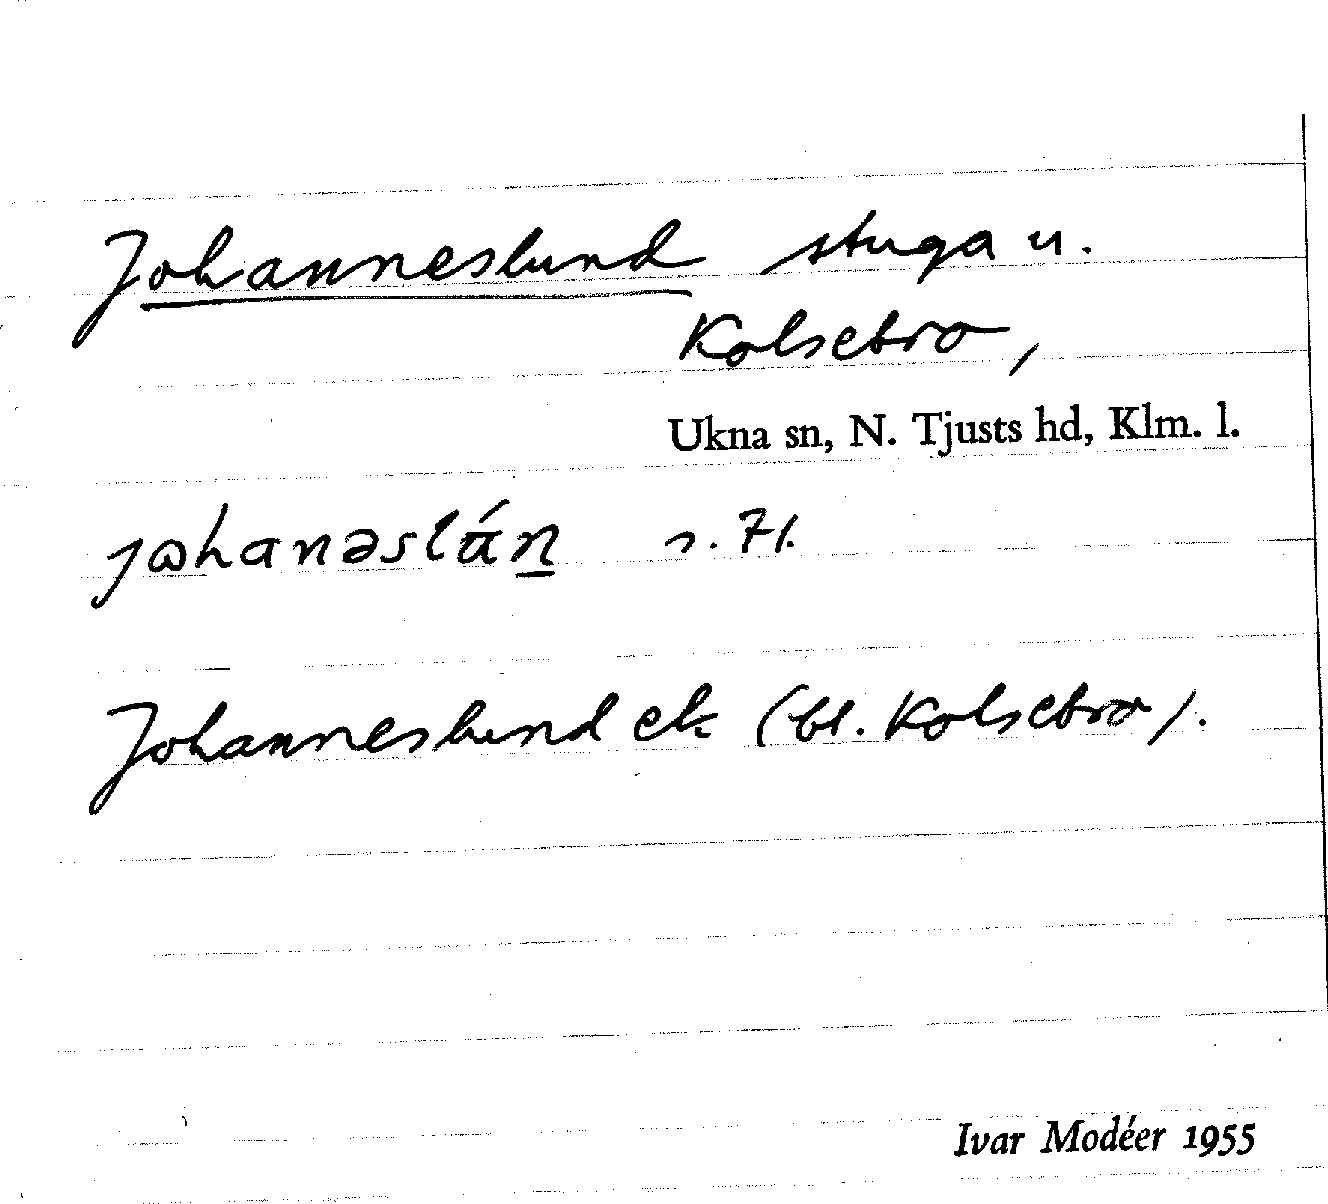 Johanneslund stuga u.
Kolsebro,
Ukna sn, N. Tjusts hd, Klm. l.
s. 71.
Johanneslund ek (bl. Kolsebro).
Ivar Modéer 1955